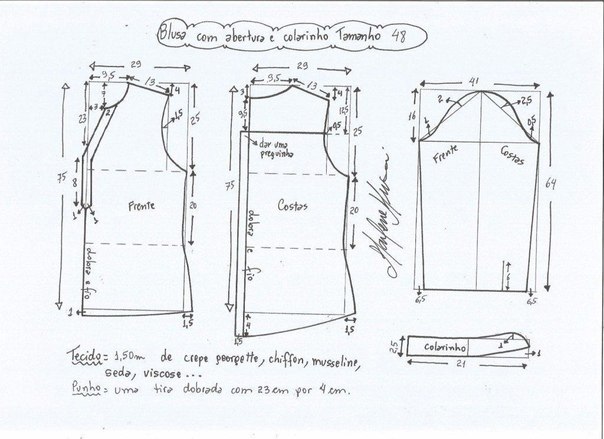 Blusa com abertura e colarinho Tamanho 48
29
9,5
13
4
23
3
2
1,5
25
75
8
1
1
Frente
20
dobra e fio
1
1,5
29
9,5
13
3
4
9,5
12,5
0,5
25
dar uma
preguinha
75
Costas
20
dobra e fio
4
1,5
41
16
2
2,5
1
0,5
Frente
Costas
64
6
6,5
6,5
2,5
Colarinho
1
1
21
Tecido = 1,50m de crepe georgette, chiffon, musseline,
seda, viscose...
Punho = uma tira dobrada com 23 cm por 4 cm.